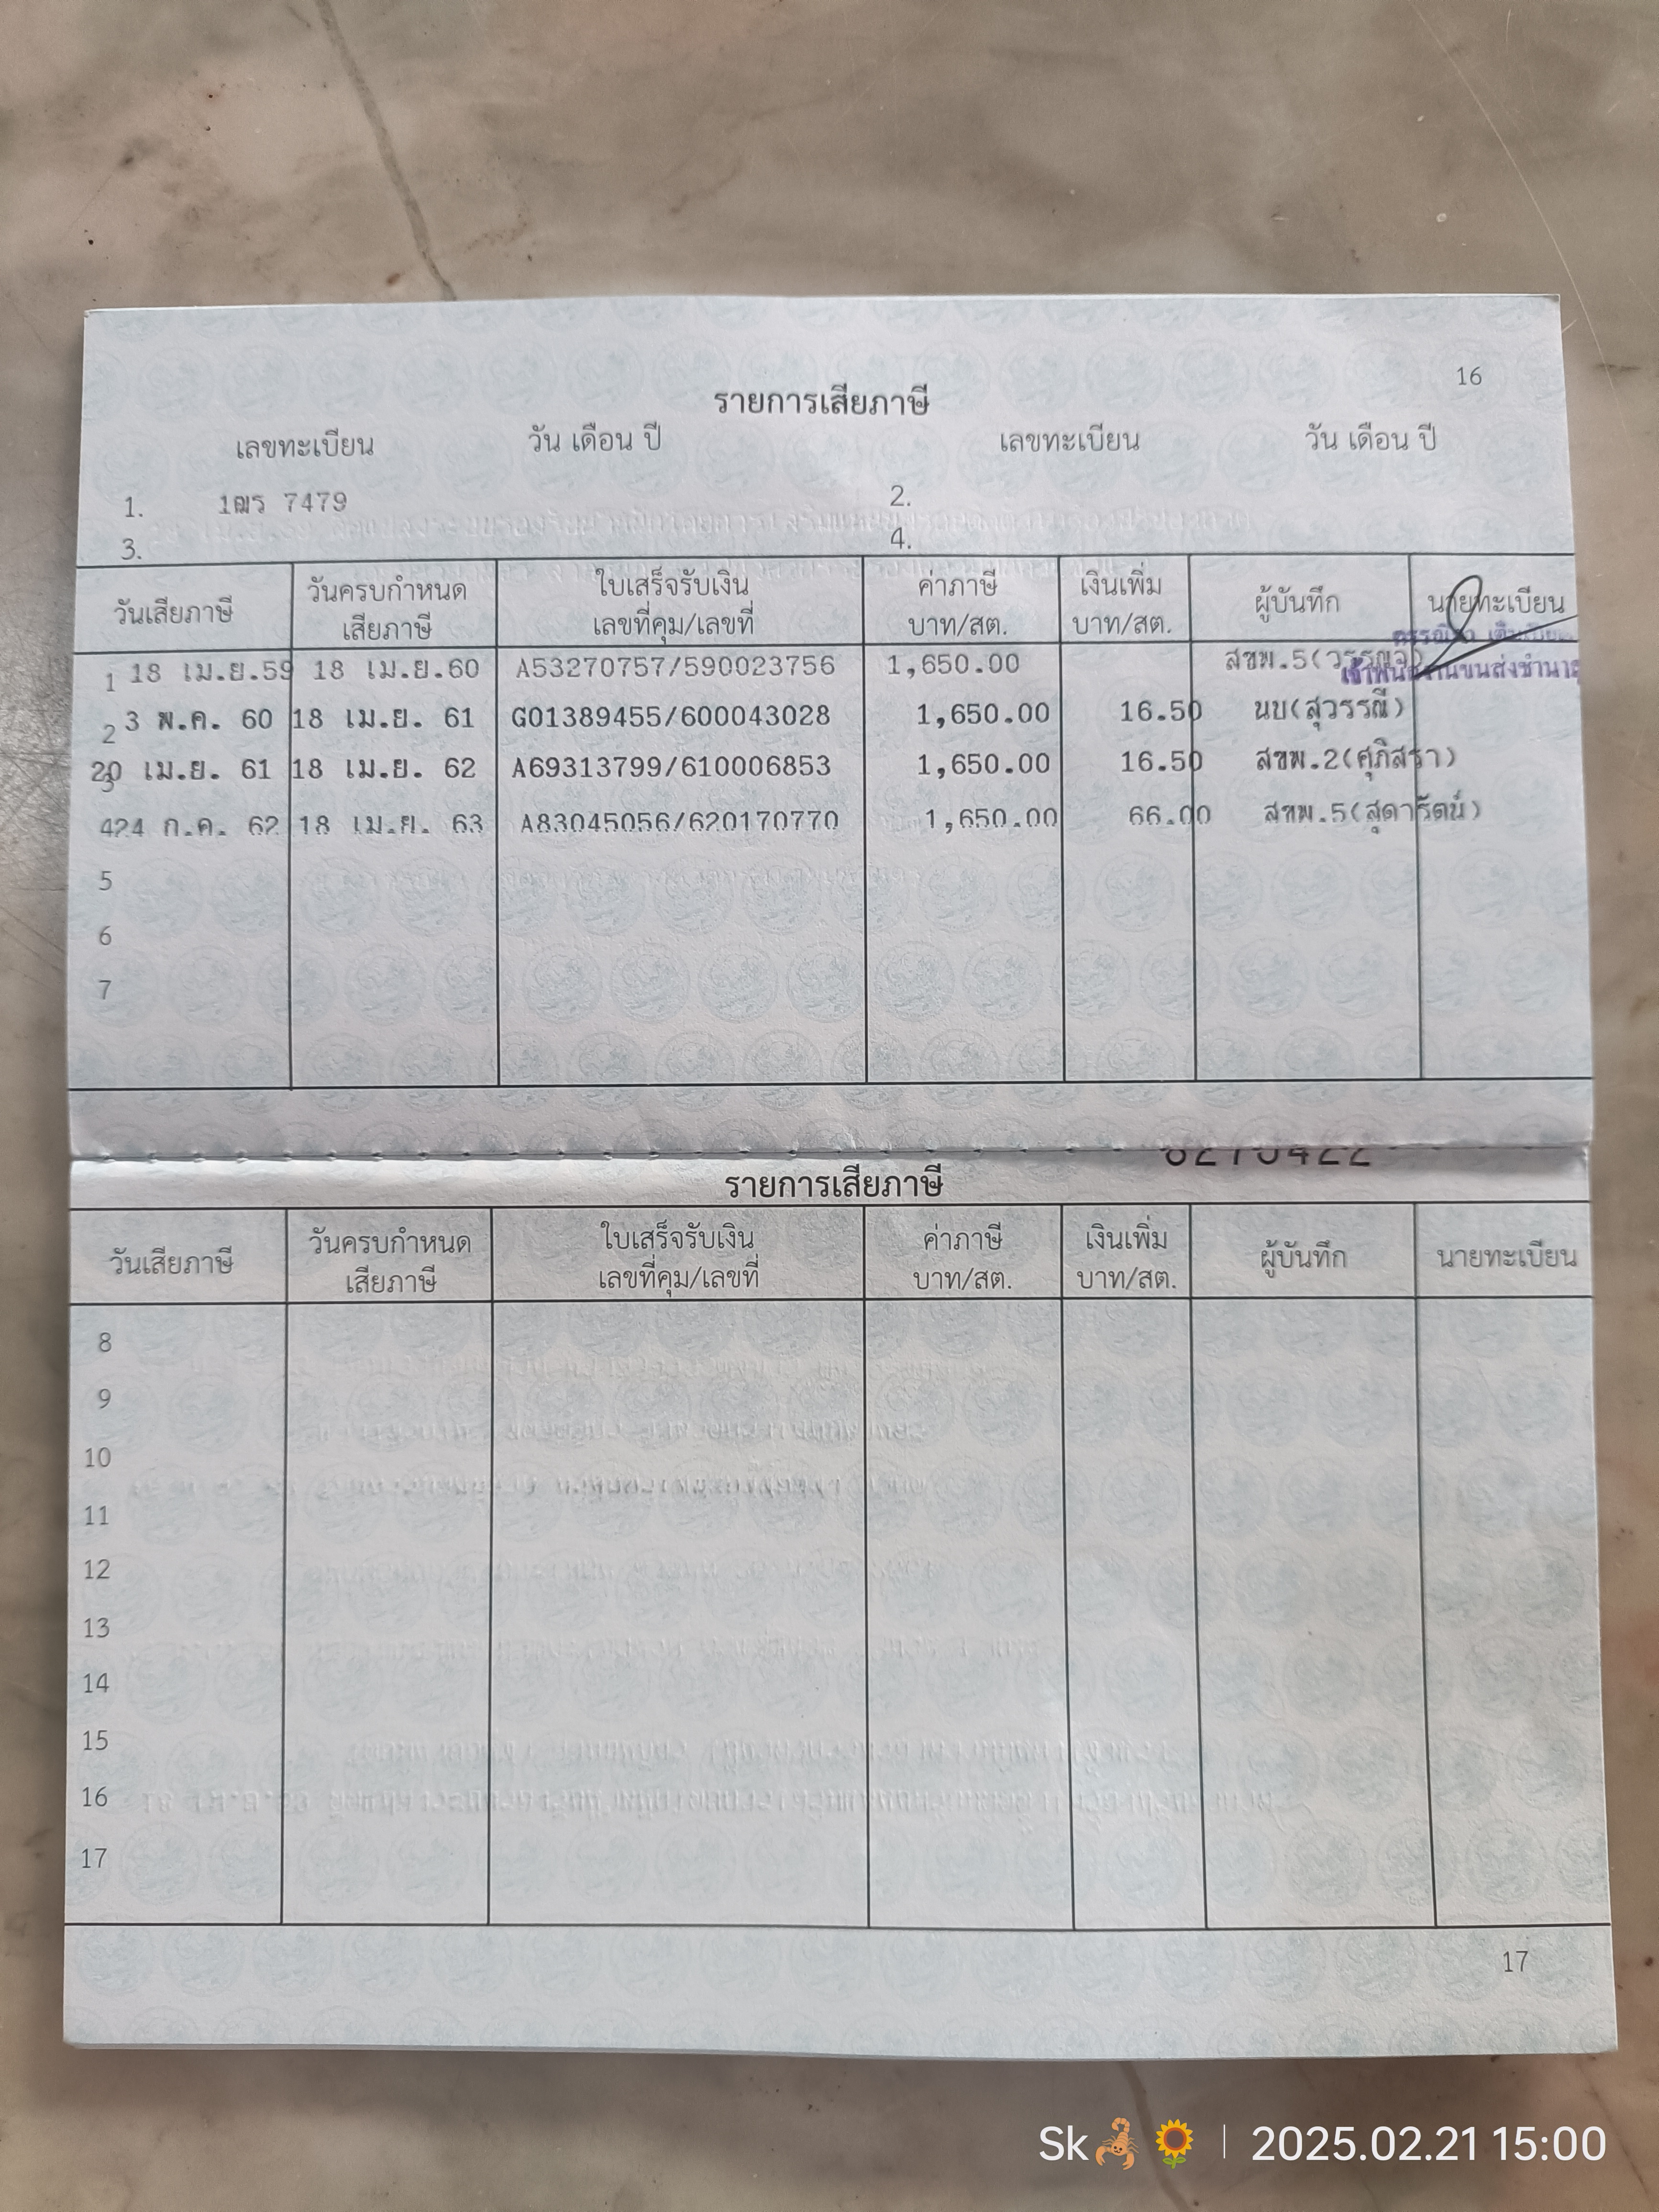 16
รายการเสียภาษี
เลขทะเบียน วัน เดือน ปี เลขทะเบียน วัน เดือน ปี
1. 1ฒร 7479 2.
3. 4.
วันเสียภาษี วันครบกำหนด เสียภาษี ใบเสร็จรับเงิน เลขที่คุม/เลขที่ ค่าภาษี บาท/สต. เงินเพิ่ม บาท/สต. ผู้บันทึก นายทะเบียน
1 18 เม.ย.59 18 เม.ย.60 A53270757/590023756 1,650.00 สขพ.5
2 3 พ.ค. 60 18 เม.ย. 61 G01389455/600043028 1,650.00 16.50 นบ(สุวรรณี)
3 20 เม.ย. 61 18 เม.ย. 62 A69313799/610006853 1,650.00 16.50 สขพ.2(ศุภิสรา)
4 24 ก.ค. 62 18 เม.ย. 63 A83045056/620170770 1,650.00 66.00 สขพ.5(สุดารัตน์)
5
6
7
รายการเสียภาษี
วันเสียภาษี วันครบกำหนด เสียภาษี ใบเสร็จรับเงิน เลขที่คุม/เลขที่ ค่าภาษี บาท/สต. เงินเพิ่ม บาท/สต. ผู้บันทึก นายทะเบียน
8
9
10
11
12
13
14
15
16
17
17
Sk🦂🌻 | 2025.02.21 15:00